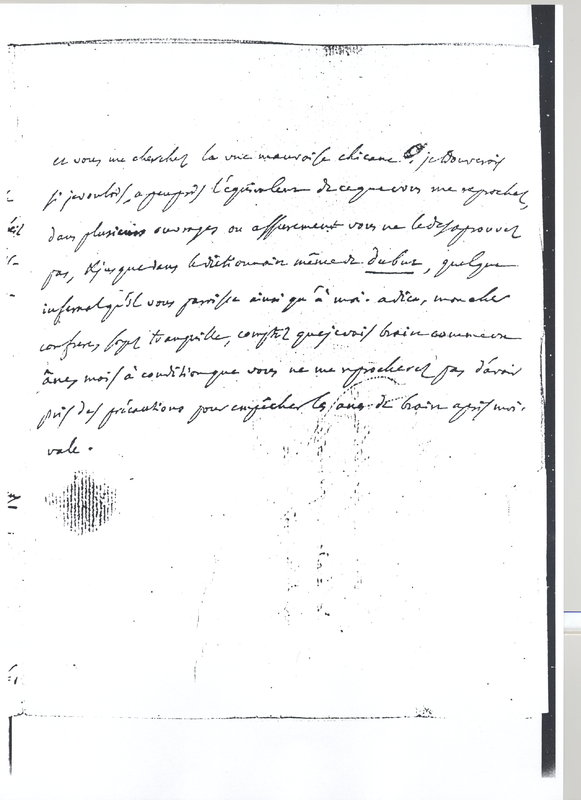 et vous me cherchez la une mauvaise chicane. je trouverois
si je voulois, a peu près l'equivalent de ce que vous me reprochez,
dans plusieurs ouvrages ou assurement vous ne le desaprouvez
pas, & jusque dans le dictionnaire même de dubut, quelque
infernal qu'il vous paroisse ainsi qu'à moi. adieu, mon cher
confrere, soyez tranquille, comptez que je vais braire comme un
âne, mais à condition que vous ne me reprocherez pas d'avoir
pris des précautions pour empêcher les anes de braire après moi.
vale.